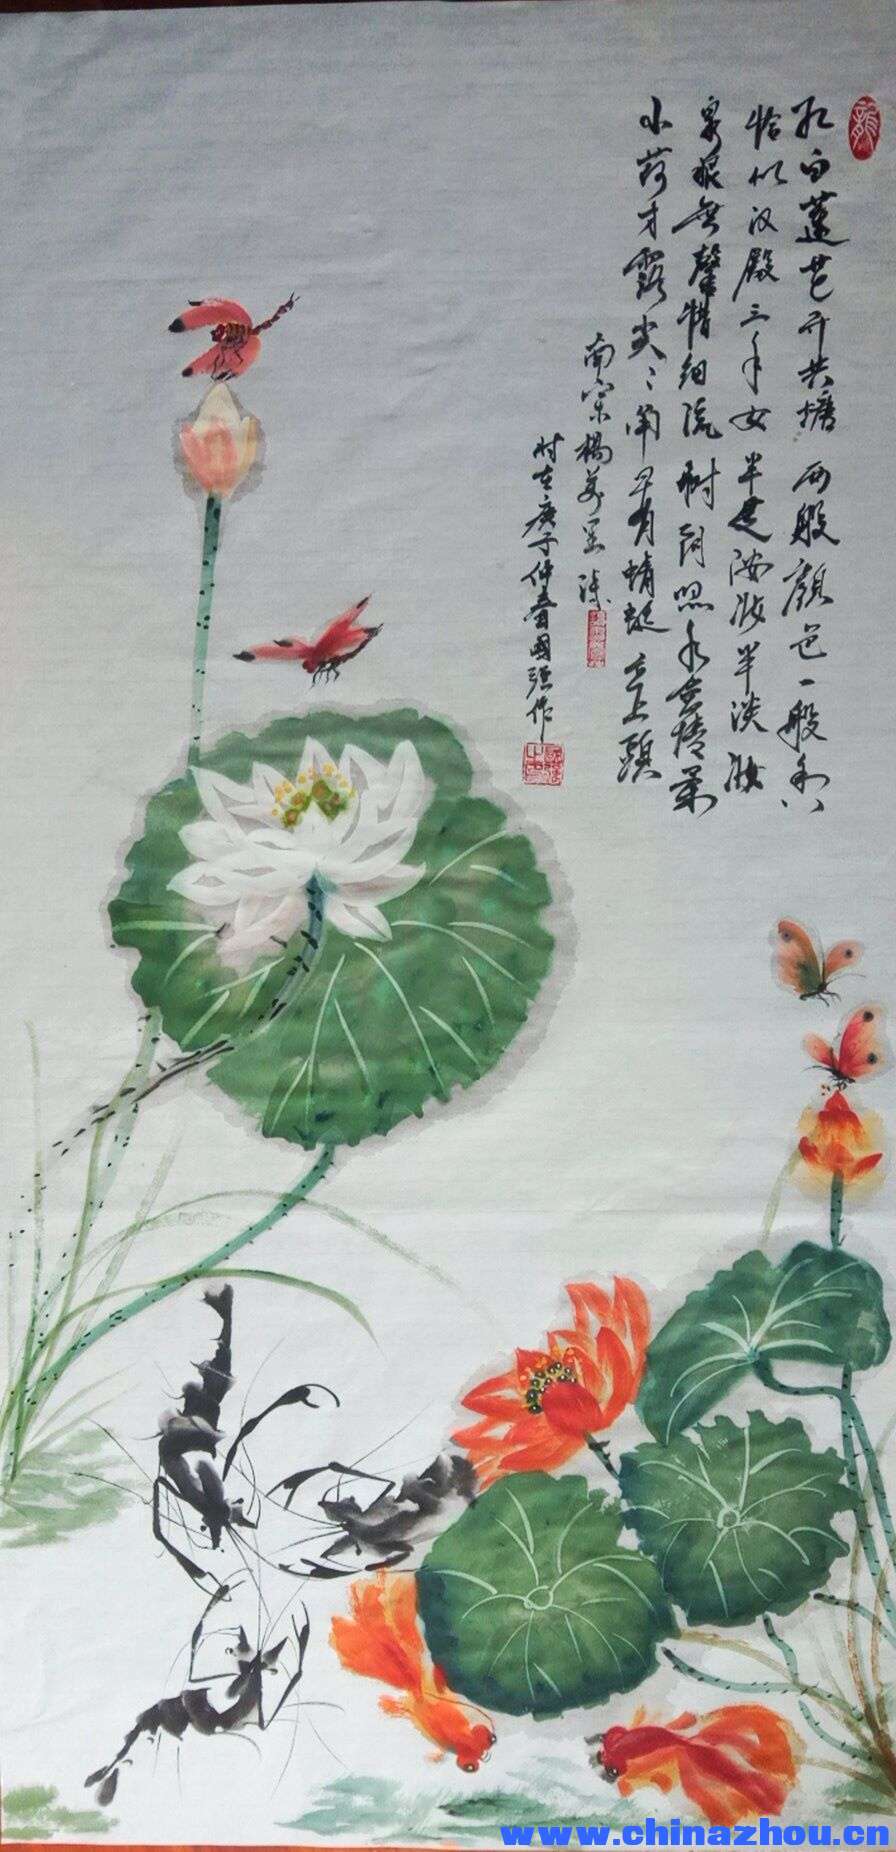 龍
红白莲花开共塘 两般颜色一般香
恰似汉殿三千女 半是浓妆半淡妆
泉眼無聲惜细流 树阴照水爱晴柔
小荷才露尖々角 早有蜻蜓立上頭
南宋楊万里 诗
时在庚子仲春國强作
www.chinazhou.cn